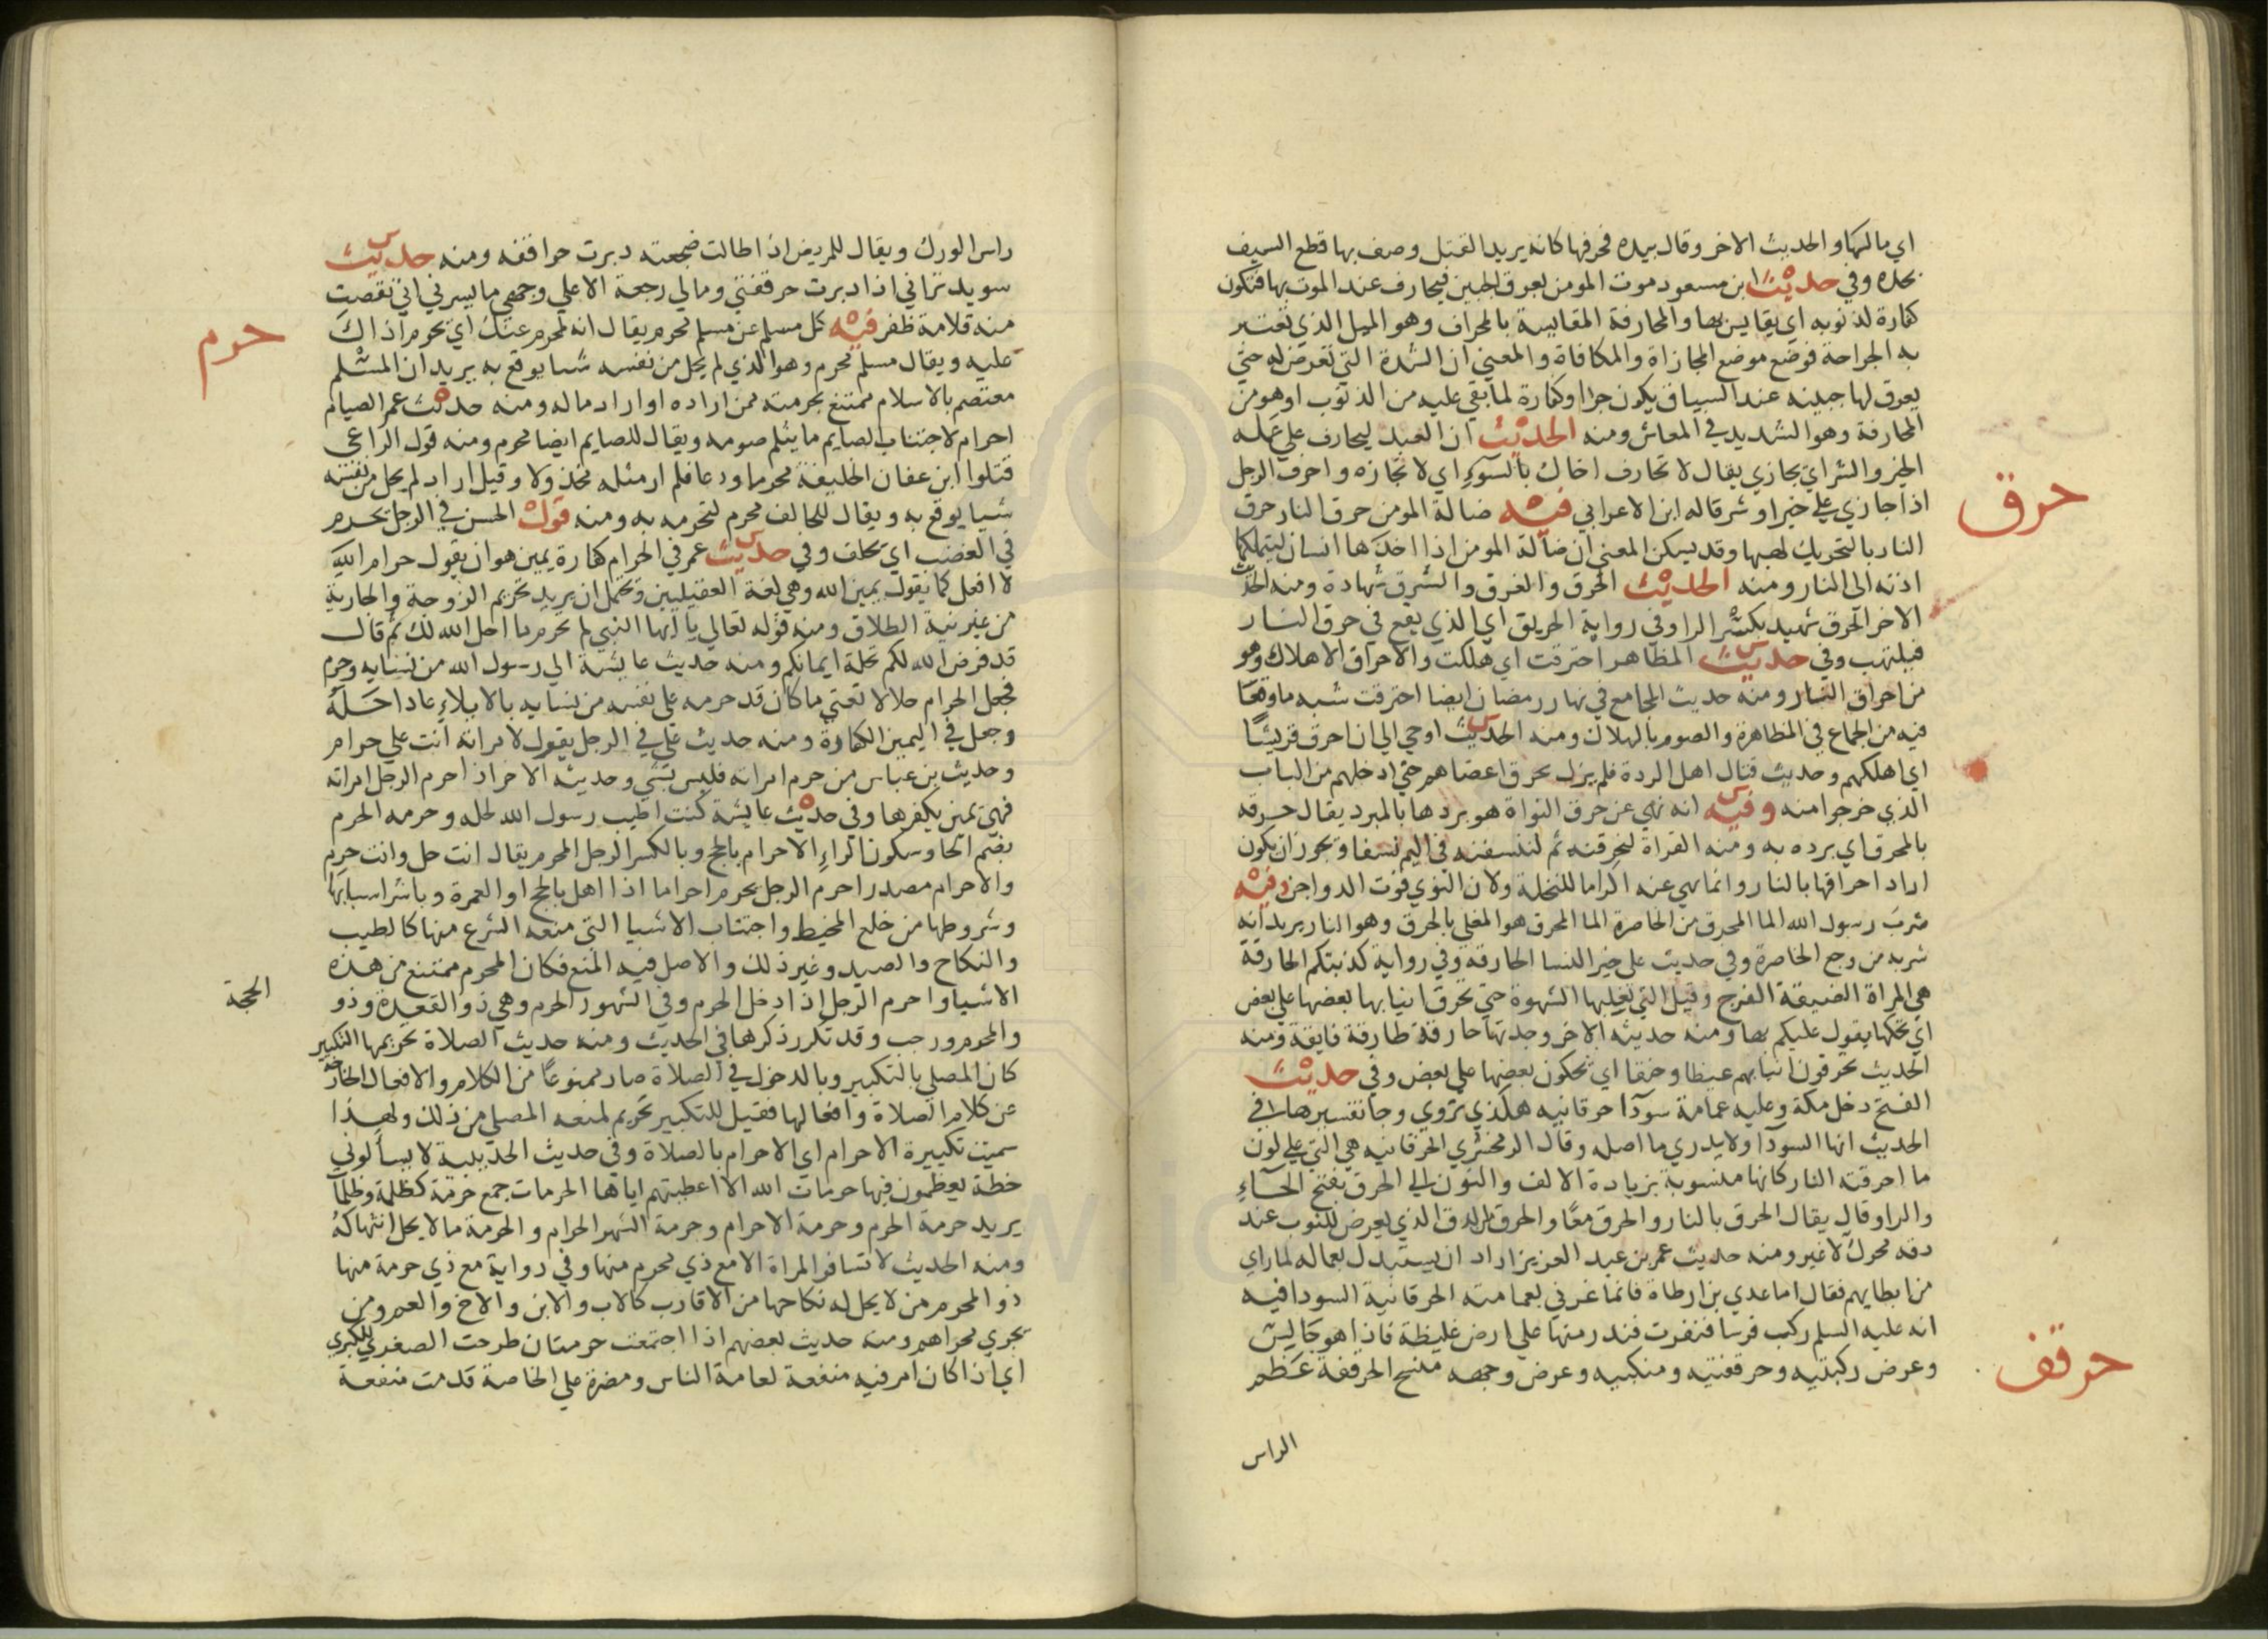 اي مالها والحديث الاخر وقال بيده فحرفها كانه يريد القتل وصف بها قطع السيف
بحده وفي حديث ابن مسعود موت المومن بعرق الجبين فيحارف عند الموت بها فتكون
كفارة لذنوبه اي يقايس بها والمحارفة المقايسة بالمحراف وهو الميل الذي تختبر
به الجراحة فوضع موضع المجازاة والمكافاة والمعني ان الشدة التي تعرض له حتي
يعرق لها جبينه عند السياق يكون جزا وكفارة لما بقي عليه من الذنوب او هو من
المحارفة وهو التشديد في المعاش ومنه الحديث ان العبد ليحارف علي عمله
الخير والشر اي يجازي يقال لا تحارف اخاك بالسوء اي لا تجازه واحرف الرجل
اذا جازي علي خير او شر قاله ابن الاعرابي فيه ضالة المومن حرق النار حرق
النار بالتحريك لهبها وقد يسكن المعني ان ضالة المومن اذا اخذها انسان ليتملكها
ادته الى النار ومنه الحديث الحرق والغرق والشرق شهادة ومنه الحديث
الاخر الحرق شهيد بكسر الرا وفي رواية الحريق اي الذي يقع في حرق النار
فيلتهب وفي حديث المظاهر احترقت اي هلكت والاحراق الاهلاك وهو
من احراق النار ومنه حديث المجامع في نهار رمضان ايضا احترقت شبه ما وقعا
فيه من الجماع في المظاهرة والصوم بالهلاك ومنه الحديث اوحي الي ان احرق قريشا
اي اهلكهم وحديث قتال اهل الردة فلم يزل يحرق اعضاهم حتي ادخلهم من الباب
الذي خرجوا منه وفيه انه نهي عن حرق النواة هو بردها بالمبرد يقال حرقه
بالمحرق اي برده به ومنه القراة لنحرقنه ثم لننسفنه في اليم نسفا ويجوز ان يكون
اراد احراقها بالنار وانما نهي عنه اكراما للنخلة ولان النوي قوت الدواجن وفيه
شرب رسول الله الما المحرق من الخاصرة الما المحرق هو المغلي بالحرق وهو النار يريد انه
شربه من وجع الخاصرة وفي حديث علي خير النسا الحارقة وفي رواية كذبتكم الحارقة
هي المراة الضيقة الفرج وقيل التي تغلبها الشهوة حتي تحرق انيابها بعضها علي بعض
اي تحكها يقول عليكم بها ومنه حديثه الاخر وجدتها حارقة طارقة فايقة ومنه
الحديث يحرقون انيابهم غيظا وحنقا اي يحكون بعضها علي بعض وفي حديث
الفتح دخل مكة وعليه عمامة سودا حرقانيه هكذي تروي وجا تفسيرها في
الحديث انها السودا ولا يدري ما اصله وقال الزمخشري الحرقانيه هي التي علي لون
ما احرقته النار كانها منسوبة بزيادة الالف والنون الي الحرق بفتح الحاء
والرا وقال يقال الحرق بالنار والحرق معا والحرق من الدق الذي يعرض للثوب عند
دقه محرك لا غير ومنه حديث عمر بن عبد العزيز اراد ان يستبدل بعماله لما راي
من ابطايهم فقال اما عدي بن ارطاة فانما غرني بعمامته الحرقانية السودا فيه
انه عليه السلم ركب فرسا فنفرت فندر منها علي ارض غليظة فاذا هو جالس
وعرض ركبتيه وحرقفتيه ومنكبيه وعرض وجهه منسح الحرقفة عظم
الراس
حرق
حرقف
راس الورك ويقال للمريض اذا طالت ضجعته دبرت حراقفه ومنه حديث
سويد تراني اذا دبرت حرقفتي ومالي رجعة الا علي وجهي ما يسرني اني نقصت
منه قلامة ظفر فيه كل مسلم عن مسلم محرم يقال انه لمحرم عنك اي يحرم اذاك
عليه ويقال مسلم محرم وهو الذي لم يحل من نفسه شيا يوقع به يريد ان المسلم
معتصم بالاسلام ممتنع بحرمته ممن اراده او اراد ماله ومنه حديث عمر الصيام
احرام لاجتناب الصايم ما يثلم صومه ويقال للصايم ايضا محرم ومنه قول الراعي
قتلوا ابن عفان الخليفة محرما ودعا فلم ار مثله مخذولا وقيل اراد لم يحل من نفسه
شيا يوقع به ويقال للحالف محرم لتحرمه به ومنه قول الحسن في الرجل يحرم
في الغضب اي يحلف وفي حديث عمر في الحرام كفارة يمين هو ان يقول حرام الله
لا افعل كما يقول يمين الله وهي لغة العقيليين ويحتمل ان يريد تحريم الزوجة والجارية
من غير نية الطلاق ومنه قوله تعالي يا ايها النبي لم تحرم ما احل الله لك ثم قال
قد فرض الله لكم تحلة ايمانكم ومنه حديث عايشة الي رسول الله من نسايه وحرم
فجعل الحرام حلالا تعني ما كان قد حرمه علي نفسه من نسايه بالايلاء عاد احله
وجعل في اليمين الكفارة ومنه حديث علي في الرجل يقول لامراته انت علي حرام
وحديث بن عباس من حرم امراته فليس بشي وحديثه الاخر اذا حرم الرجل امراته
فهي يمين يكفرها وفي حديث عايشة كنت اطيب رسول الله لحله وحرمه الحرم
بضم الحا وسكون الراء الاحرام بالحج وبالكسر الرجل المحرم يقال انت حل وانت حرم
والاحرام مصدر احرم الرجل يحرم احراما اذا اهل بالحج او العمرة وباشر اسبابها
وشروطها من خلع المخيط واجتناب الاشيا التي منعه الشرع منها كالطيب
والنكاح والصيد وغير ذلك والاصل فيه المنع فكان المحرم ممتنع من هذه
الاشيا واحرم الرجل اذا دخل الحرم وفي الشهور الحرم وهي ذو القعدة وذو
الحجة
والمحرم ورجب وقد تكرر ذكرها في الحديث ومنه حديث الصلاة تحريمها التكبير
كان المصلي بالتكبير وبالدخول في الصلاة صار ممنوعا من الكلام والافعال الخارجة
عن كلام الصلاة وافعالها فقيل للتكبير تحريم لمنعه المصلي من ذلك ولهذا
سميت تكبيرة الاحرام اي الاحرام بالصلاة وفي حديث الحديبية لا يسألوني
خطة يعظمون فيها حرمات الله الا اعطيتهم اياها الحرمات جمع حرمة كظلمة وظلمات
يريد حرمة الحرم وحرمة الاحرام وحرمة الشهر الحرام والحرمة ما لا يحل انتهاكه
ومنه الحديث لا تسافر المراة الا مع ذي محرم منها وفي رواية مع ذي حرمة منها
ذو المحرم من لا يحل له نكاحها من الاقارب كالاب والابن والاخ والعم ومن
يجري مجراهم ومنه حديث بعضهم اذا اجتمعت حرمتان طرحت الصغري للكبري
اي اذا كان امر فيه منفعة لعامة الناس ومضرة علي الخاصة قدمت منفعة
حرم